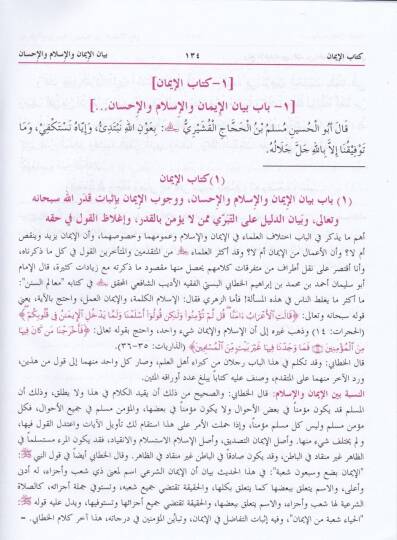 كتاب الإيمان ١٣٤ بيان الإيمان والإسلام والإحسان
[١- كتاب الإيمان]
[١- باب بيان الإيمان والإسلام والإحسان...]
قَالَ أَبُو الْحُسَيْنِ مُسْلِمُ بْنُ الْحَجَّاجِ الْقُشَيْرِيُّ: بِعَوْنِ اللهِ نَبْتَدِئُ، وَإِيَّاهُ نَسْتَكْفِي، وَمَا
تَوْفِيقُنَا إِلاَّ بِاللهِ جَلَّ جَلَالُهُ.
(١) كتاب الإيمان
(١) باب بيان الإيمان والإسلام والإحسان، ووجوب الإيمان بإثبات قدر الله سبحانه
وتعالى، وبيان الدليل على التبرّي ممن لا يؤمن بالقدر، وإغلاظ القول في حقه
أهم ما يذكر في الباب اختلاف العلماء في الإيمان والإسلام وعمومهما وخصوصهما، وأن الإيمان يزيد وينقص
أم لا؟ وأن الأعمال من الإيمان أم لا؟ وقد أكثر العلماء من المتقدمين والمتأخرين القول في كل ما ذكرناه،
وأنا أقتصر على نقل أطراف من متفرقات كلامهم يحصل منها مقصود ما ذكرته مع زيادات كثيرة، قال الإمام
أبو سليمان أحمد بن محمد بن إبراهيم الخطابي البستي الفقيه الأديب الشافعي المحقق في كتابه "معالم السنن":
ما أكثر ما يغلط الناس في هذه المسألة! فأما الزهري فقال: الإسلام الكلمة، والإيمان العمل، واحتج بالآية، يعني
قوله تعالى: ﴿قَالَتِ الْأَعْرَابُ آمَنَّا قُل لَّمْ تُؤْمِنُوا وَلَٰكِن قُولُوا أَسْلَمْنَا وَلَمَّا يَدْخُلِ الْإِيمَانُ فِي قُلُوبِكُمْ﴾
(الحجرات: ١٤) وذهب غيره إلى أن الإسلام والإيمان شيء واحد، واحتج بقوله تعالى: ﴿فَأَخْرَجْنَا مَن كَانَ فِيهَا
مِنَ الْمُؤْمِنِينَ فَمَا وَجَدْنَا فِيهَا غَيْرَ بَيْتٍ مِّنَ الْمُسْلِمِينَ﴾ (الذاريات: ٣٥-٣٦).
قال الخطابي: وقد تكلم في هذا الباب رجلان من كبراء أهل العلم، وصار كل واحد منهما إلى قول من هذين،
ورد الآخر منهما على المتقدم، وصنف عليه كتابا يبلغ عدد أوراقه المئين.
النسبة بين الإيمان والإسلام: قال الخطابي: والصحيح من ذلك أن يقيد الكلام في هذا ولا يطلق، وذلك أن
المسلم قد يكون مؤمنا في بعض الأحوال ولا يكون مؤمناً في بعضها، والمؤمن مسلم في جميع الأحوال، فكل
مؤمن مسلم وليس كل مسلم مؤمناً، وإذا حملت الأمر على هذا استقام لك تأويل الآيات واعتدل القول فيها،
و لم يختلف شيء منها. وأصل الإيمان التصديق، وأصل الإسلام الاستسلام والانقياد، فقد يكون المرء مستسلماً في
الظاهر غير منقاد في الباطن، وقد يكون صادقاً في الباطن غير منقاد في الظاهر. وقال الخطابي أيضاً في قول النبي ﷺ:
"الإيمان بضع وسبعون شعبة": في هذا الحديث بيان أن الإيمان الشرعي اسم لمعنى ذي شعب وأجزاء، له أدنى
وأعلى، والاسم يتعلق ببعضها كما يتعلق بكلها، والحقيقة تقتضي جميع شعبه، وتستوفي جملة أجزائه، كالصلاة
الشرعية لها شعب وأجزاء، والاسم يتعلق ببعضها، والحقيقة تقتضي جميع أجزائها وتستوفيها، ويدل عليه قوله ﷺ:
"الحياء شعبة من الإيمان"، وفيه إثبات التفاضل في الإيمان، وتباين المؤمنين في درجاته، هذا آخر كلام الخطابي. -